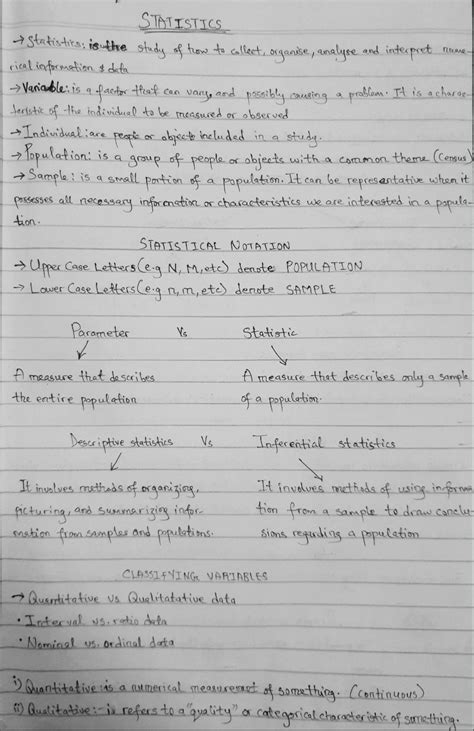 STATISTICS
→ Statistics: is the study of how to collect, organise, analyse and interpret nume-
rical information & data
→ Variable: is a factor that can vary, and possibly causing a problem. It is a charac-
teristic of the individual to be measured or observed
→ Individual: are people or objects included in a study.
→ Population: is a group of people or objects with a common theme (Census)
→ Sample: is a small portion of a population. It can be representative when it
possesses all necessary information or characteristics we are interested in a popula-
tion.
STATISTICAL NOTATION
→ Upper Case Letters (e.g N, M, etc) denote POPULATION
→ Lower Case Letters (e.g n, m, etc) denote SAMPLE
Parameter Vs Statistic
A measure that describes
the entire population
A measure that describes only a sample
of a population.
Descriptive statistics Vs Inferential statistics
It involves methods of organizing,
picturing, and summarizing infor-
mation from samples and populations.
It involves methods of using informa-
tion from a sample to draw conclu-
sions regarding a population
CLASSIFYING VARIABLES
→ Quantitative vs Qualitatative data
• Interval vs. ratio data
• Nominal vs. ordinal data
i) Quantitative: is a numerical measurement of something. (continuous)
ii) Qualitative:- is refers to a "quality" or categorial characteristic of something.